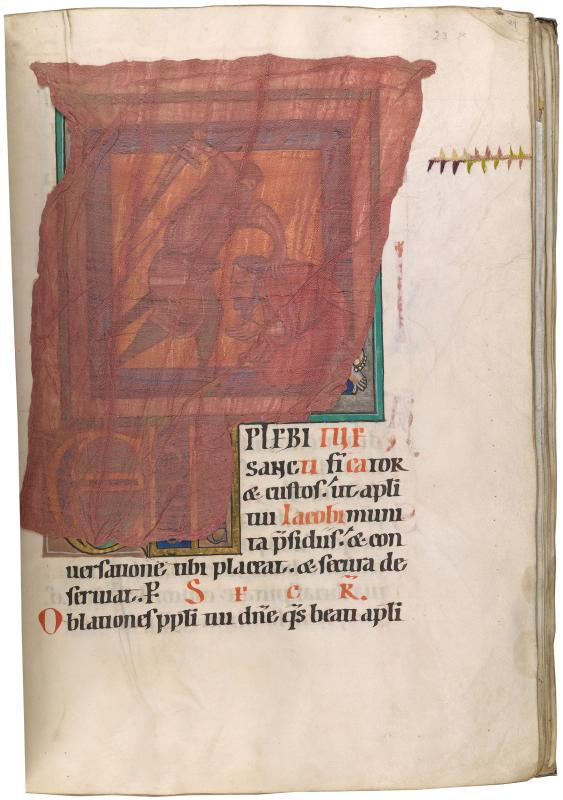 23
E PLEBI TUE
sanctificator
& custos. ut apli
tui Iacobi muni
ta p̄sidiis. & con
uersatione tibi placeat. & secura de
seruiat. P̄ S E C R̄.
Oblationes ppli tui dn̄e q̄s beati apli